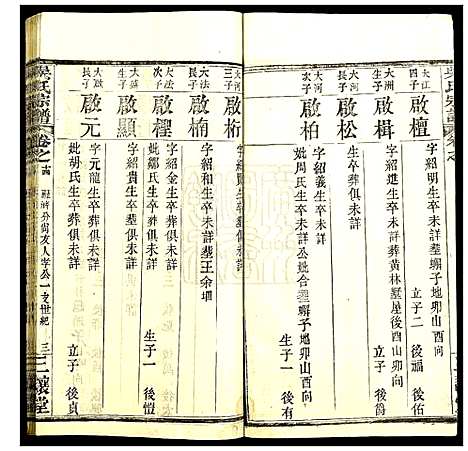 吳氏宗譜
大江四子
啟檀
字紹明生卒未詳葬塚子地卯山酉向
立子二 後佑 後福
大洲生子
啟楫
字紹 生卒未詳葬黃林墅屋後酉山卯向
大河長子
啟松
字紹義生卒葬俱未詳
大河次子
啟柏
妣周氏生卒未詳公妣合墅 子地卯山酉向
生子一 後有
大河三子
啟桁
生卒葬俱未詳
大法長子
啟楠
字紹和生卒未詳墅王余垇
大法次子
啟檉
字紹金生卒葬俱未詳
妣鄒氏生卒葬俱未詳
生子一 後愷
大蓝生子
啟顯
字紹貴生卒葬俱未詳
大 長子
啟元
字元龍生卒葬俱未詳
妣胡氏生卒葬俱未詳
立子 後貞
吳氏宗譜
卷之
分尚友人学公一支世紀
三讓堂